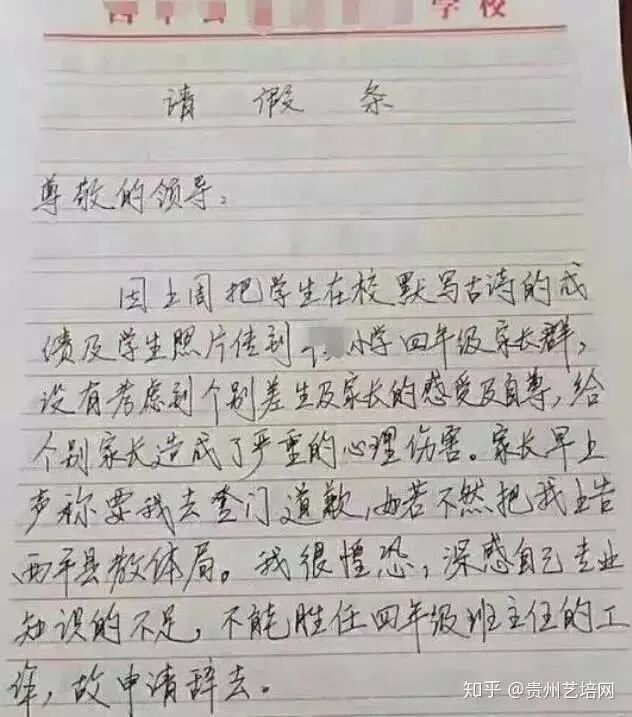 学校
请假条
尊敬的领导:
因上周把学生在校默写古诗的成
绩及学生照片传到小学四年级家长群,
没有考虑到个别差生及家长的感受及自尊,给
个别家长造成了严重的心理伤害。家长早上
声称要我去登门道歉,如若不然把我上告
西平县教体局。我很惶恐,深感自己专业
知识的不足,不能胜任四年级班主任的工
作,故申请辞去。
知乎 @贵州艺培网